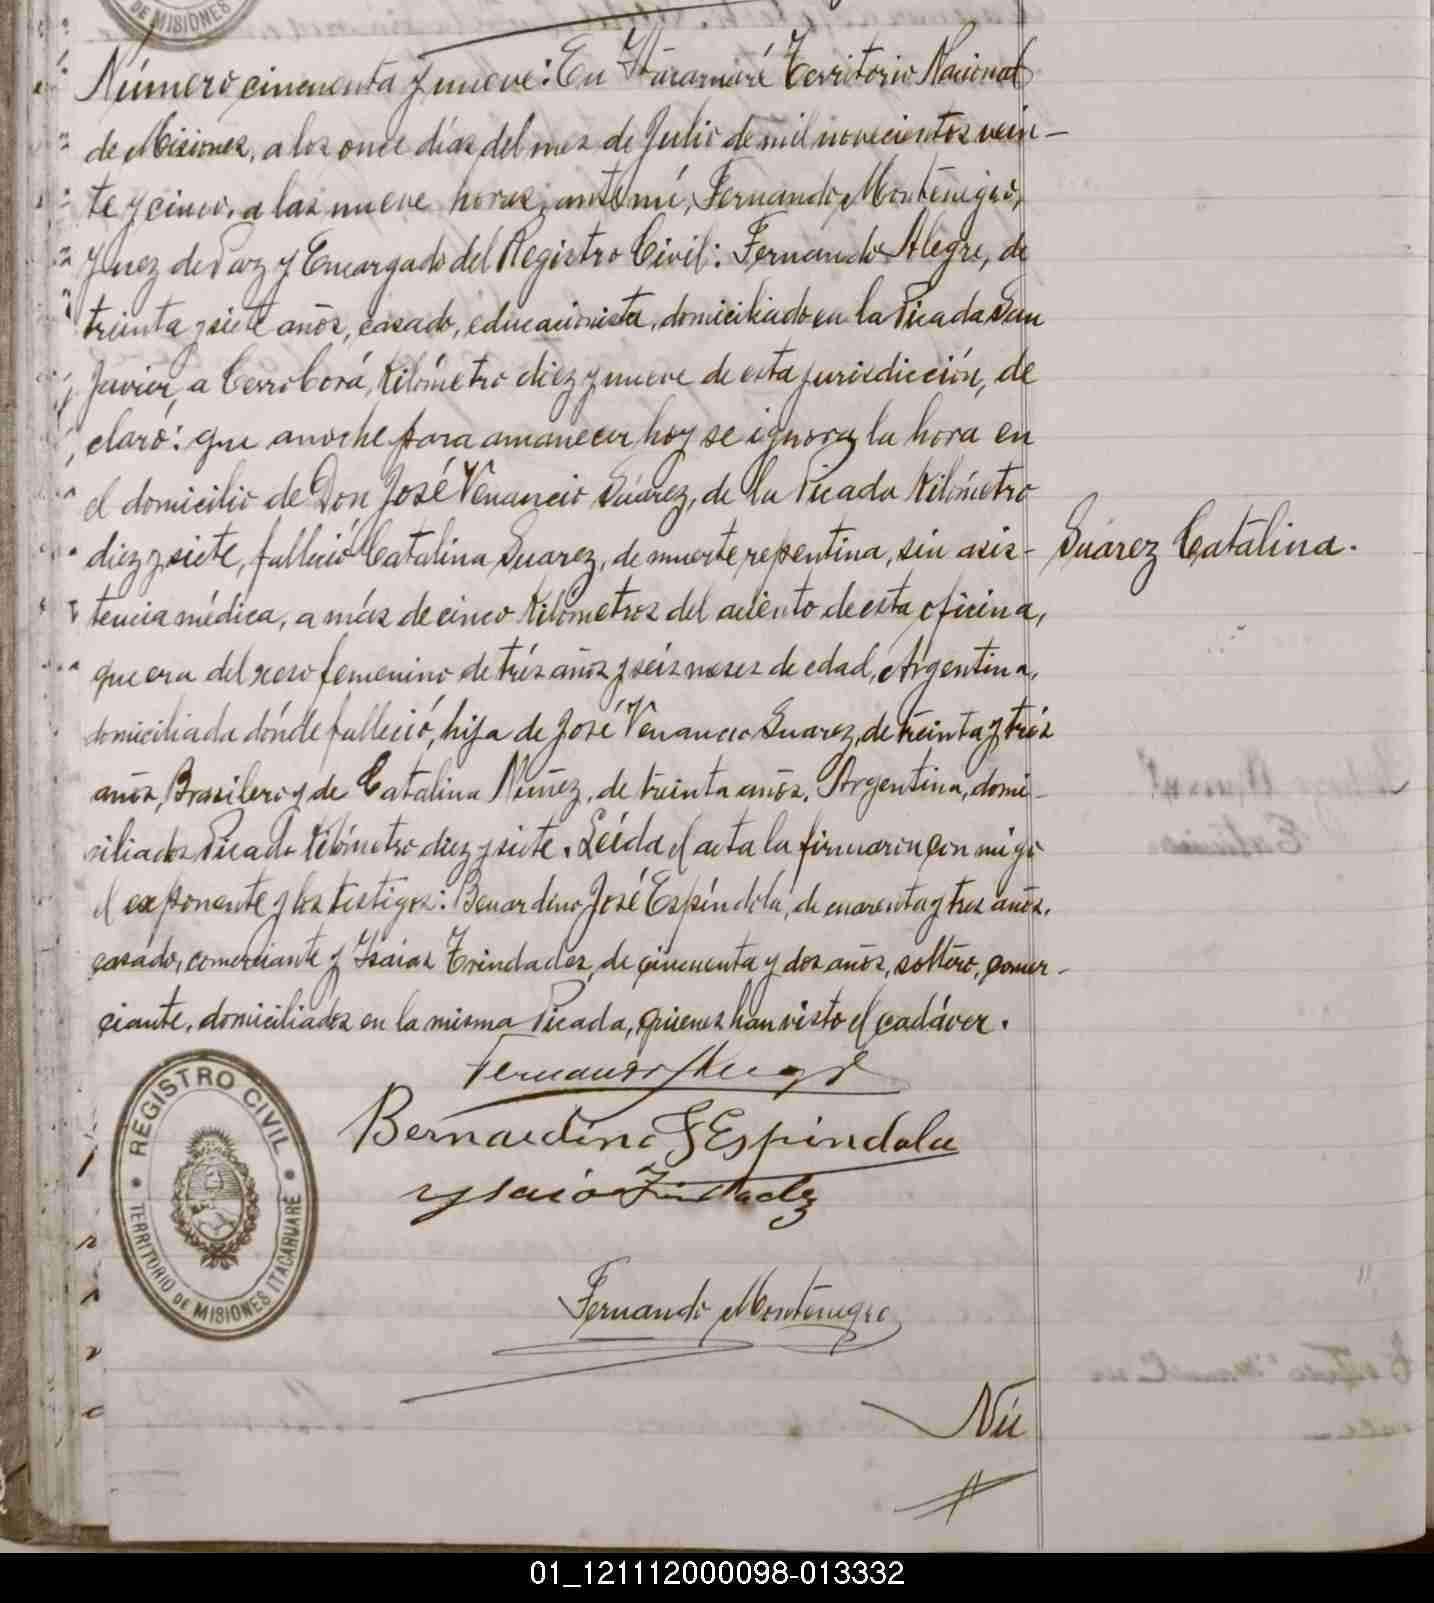 DE MISIONES
Número cincuenta y nueve: En Itacaruaré Territorio Nacional
de Misiones, a los once días del mes de Julio de mil novecientos vein-
te y cinco, a las nueve horas, ante mí, Fernando Montenegro,
Juez de Paz y Encargado del Registro Civil: Fernando Alegre, de
treinta y siete años, casado, educacionista, domiciliado en la Picada San
Javier, a Cerro Corá, Kilómetro diez y nueve de esta jurisdicción, de
claró: que anoche para amanecer hoy se ignora la hora en
el domicilio de Don José Venancio Suárez, de la Picada Kilómetro
diez y siete, falleció Catalina Suarez, de muerte repentina, sin asis-
Suárez Catalina.
tencia médica, a más de cinco Kilómetros del asiento de esta oficina,
que era del sexo femenino de trés años y seis meses de edad, Argentina,
domiciliada dónde falleció, hija de José Venancio Suarez, de treinta y trés
años, Brasilero y de Catalina Nuñez, de treinta años, Argentina, domi-
ciliados Picada Kilómetro diez y siete. Leída el acta la firmaron con migo
el exponente y los testigos: Bernardino José Espíndola, de cuarenta y tres años,
casado, comerciante y Isaías Trindades, de cincuenta y dos años, soltero, comer-
ciante, domiciliados en la misma Picada, quienes han visto el cadáver.
Fernando Alegre
Bernardino J Espindola
Ysaias Trindadez
REGISTRO CIVIL
TERRITORIO DE MISIONES ITACARUARÉ
Fernando Montenegro
Nú
01_121112000098-013332